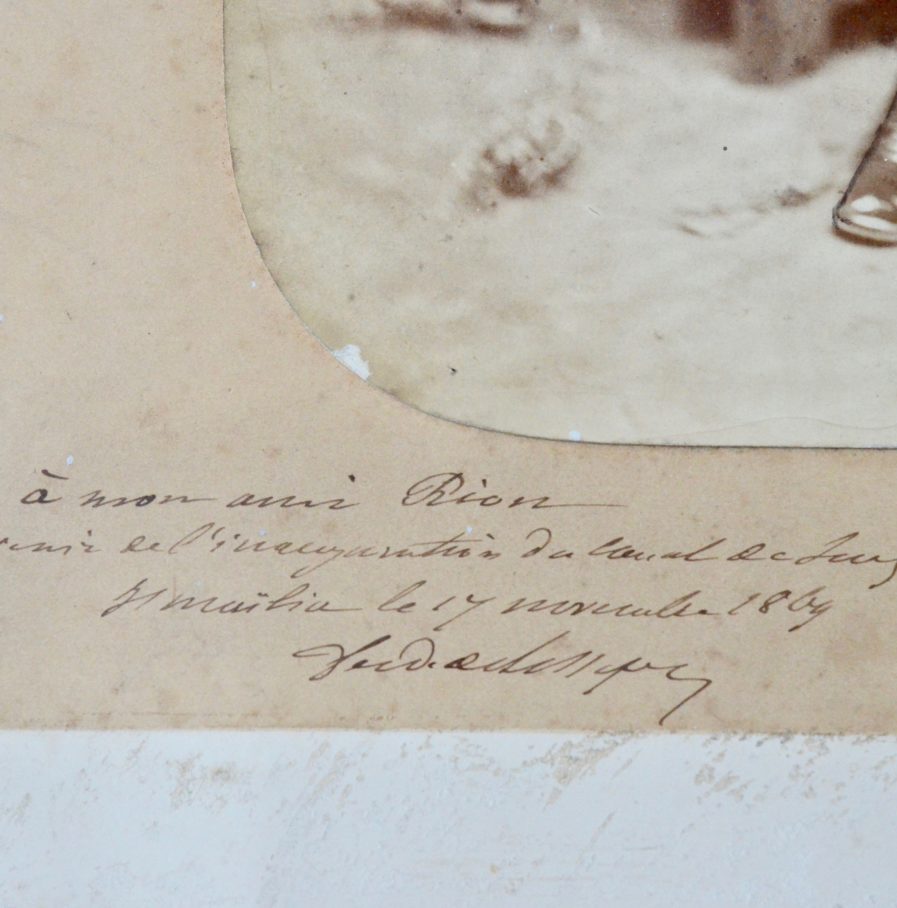 à mon ami Riou
enir de l'inauguration du Canal de Suez
Ismaïlia le 17 novembre 1869
Ferd. de Lesseps